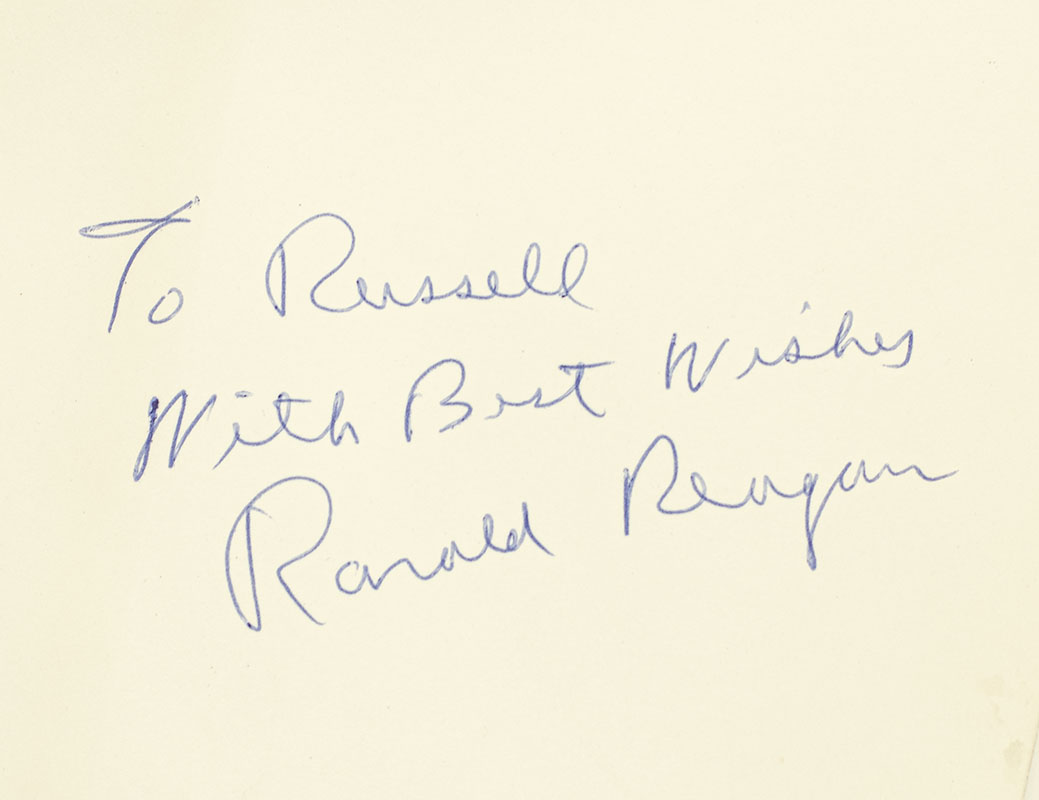 To Russell
With Best Wishes
Ronald Reagan